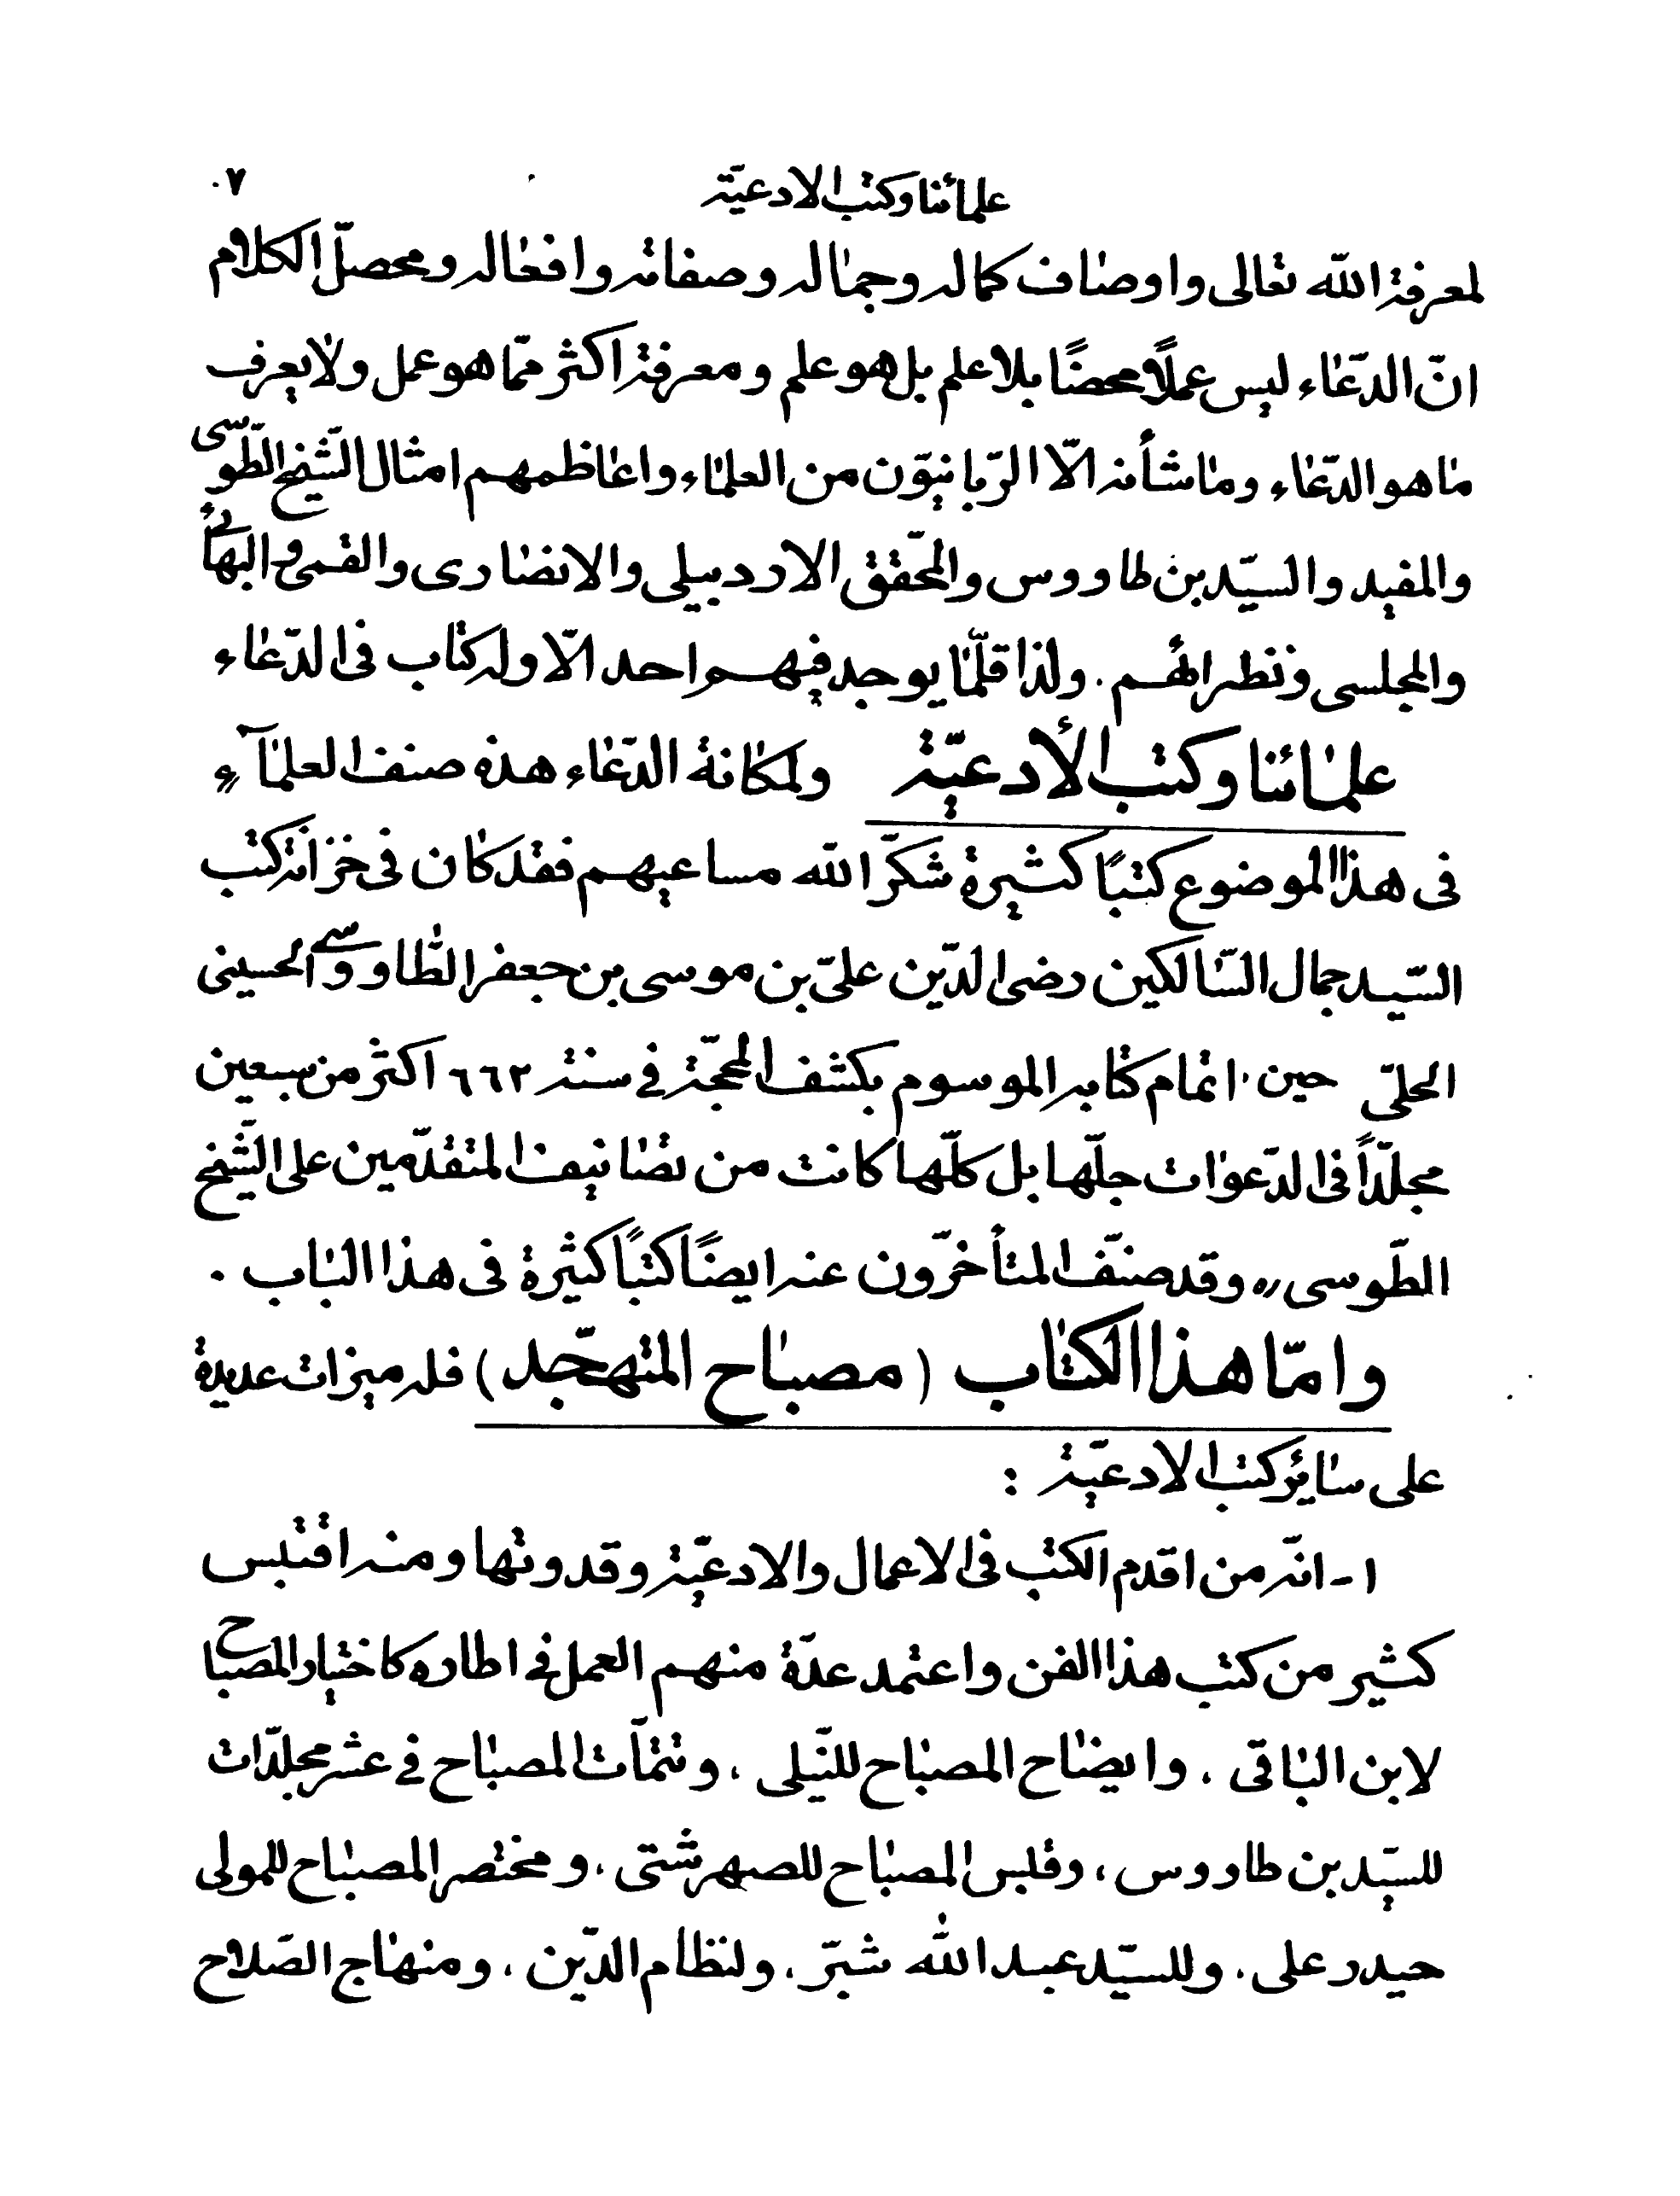 علمائنا وكتب الادعيّة ٧
لمعرفة الله تعالى واوصاف كماله وجماله وصفاته وافعاله ومحصلّ الكلام
انّ الدّعاء ليس عملًا محضًا بلا علم بل هو علم ومعرفة اكثر ممّا هو عمل ولا يعرف
ما هو الدّعاء وما شأنه الاّ الرّبانيّون من العلماء واعاظمهم امثال الشّيخ الطّوسى
والمفيد والسيّد بن طاووس والمحّقق الاردبيلى والانصارى والقمى والبهائى
والمجلسى ونظرائهم . ولذا قلّما يوجد فيهم احد الاّ وله كتاب فى الدّعاء
علمائنا وكتب الأدعيّة ولمكانة الدّعاء هذه صنف العلمآء
فى هذا الموضوع كتبًا كثيرة شكّر الله مساعيهم فقد كان فى خزانة كتب
السّيد جمال السّالكين رضى الدّين علىّ بن موسى بن جعفر الطّاووسى الحسينى
الحلىّ حين اتمام كتابه الموسوم بكشف المحجّة فى سنة ٦٦٢ اكثر من سبعين
مجلّداً فى الدّعوات جلّها بل كلّها كانت من تصانيف المتقدّمين على الشّيخ
الطّوسى ره وقد صنّف المتأخرّون عنه ايضًا كتبًا كثيرة فى هذا الباب .
وامّا هذا الكتاب ( مصباح المتهجّد ) فله ميزات عديدة
على سائر كتب الادعيّة :
١ـ انّه من اقدم الكتب فى الاعمال والادعيّة وقدوتها ومنه اقتبس
كثير من كتب هذا الفن واعتمد عدّة منهم العمل فى اطاره كاختيار المصباح
لابن الباقى ، وايضاح المصباح للنّيلى ، وتتمّات المصباح فى عشر مجلّدات
للسيّد بن طاووس ، وقبس المصباح للصهرشتى ، ومختصر المصباح للمولى
حيدر على ، وللسيّد عبد الله شبّر ، ولنظام الدّين ، ومنهاج الصّلاح